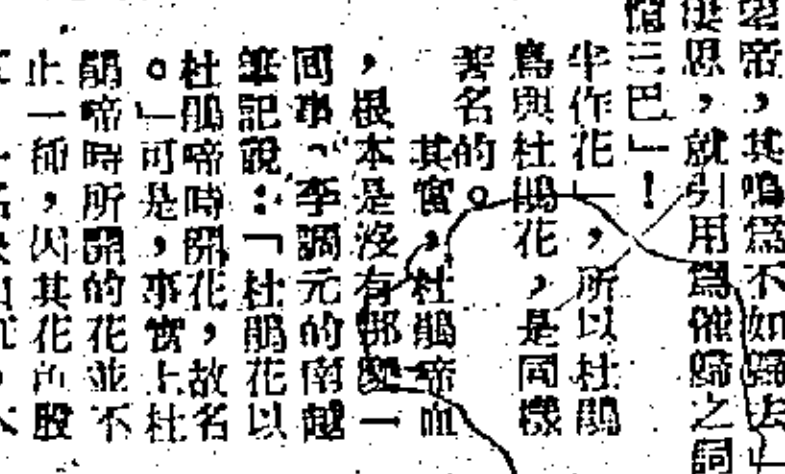 帝,其鳴爲不如歸去」
思,就引用爲催歸之詞
憶三巴」!
半作花」,所以杜鵑
鳥與杜鵑花,是同樣
著名的。
其實,杜鵑帝血
,根本是沒有那麼一
囘事,李調元的南越
筆記說:「杜鵑花以
杜鵑啼時開花,故名
。」可是,事實上杜
鵑啼時所開的花並不
止一種,因其花色殷